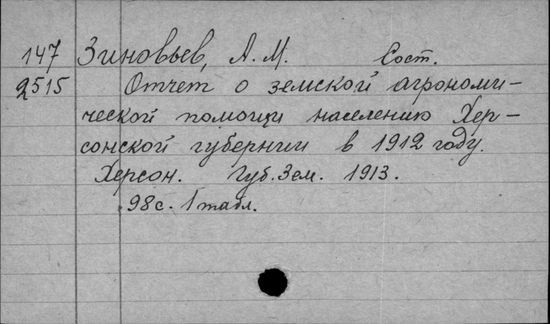 147 Зиновьев, А. М. Сост.
2515 Отчет о земской агрономи-
ческой помощи населению Хер-
сонской губернии в 1912 году.
Херсон. Губ. Зем. 1913.
98 с. 1 табл.